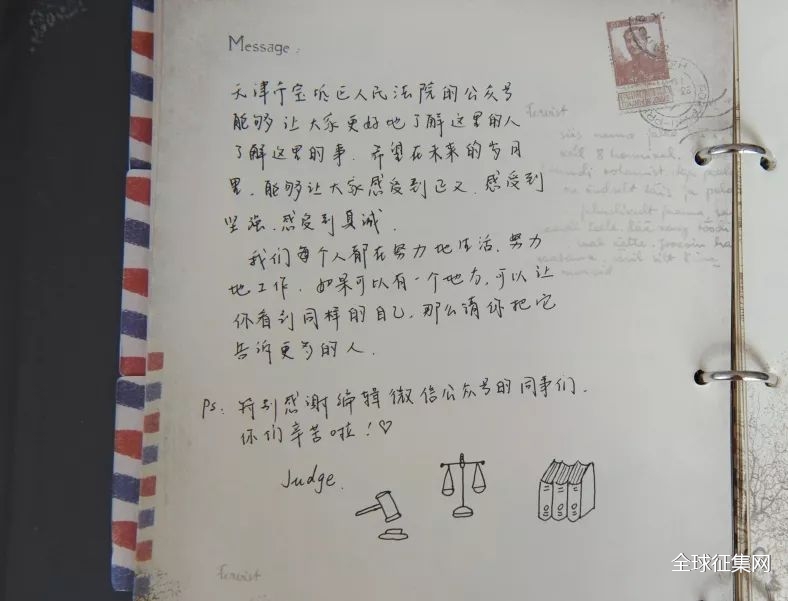 Message:
天津市宝坻区人民法院的公众号
能够让大家更好地了解这里的人
了解这里的事. 希望在未来的岁月
里, 能够让大家感受到正义. 感受到
坚强. 感受到真诚.
我们每个人都在努力地生活, 努力
地工作. 如果可以有一个地方, 可以让
你看到同样的自己, 那么请你把它
告诉更多的人.
Ps: 特别感谢编辑微信公众号的同事们.
你们辛苦啦！♡
Judge.
全球征集网